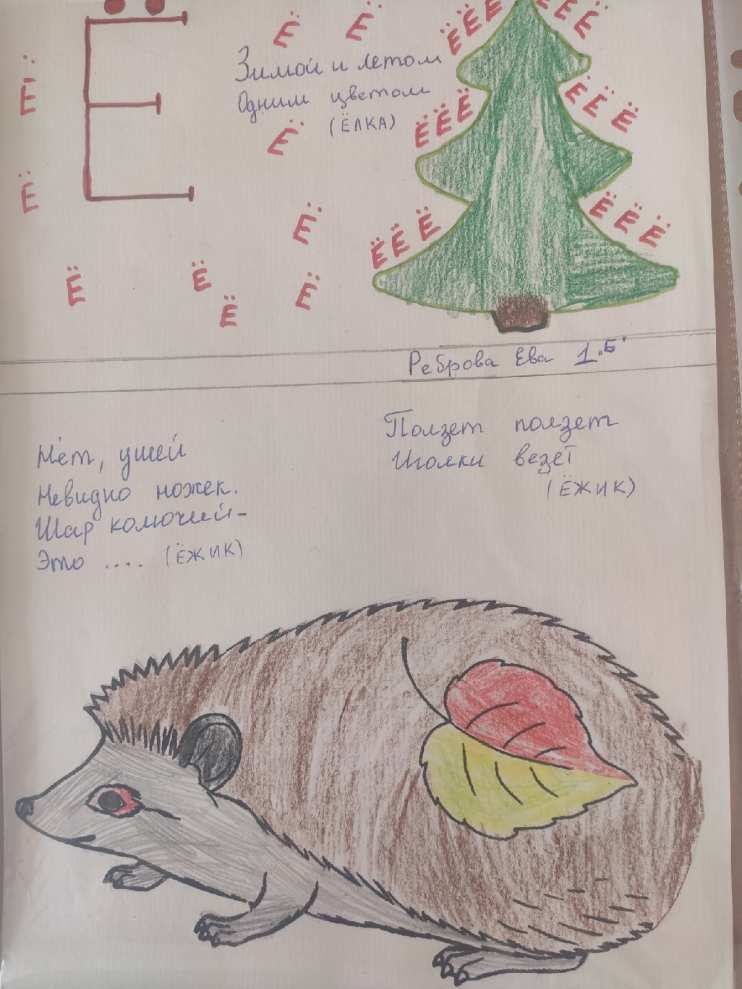 Ё
Ё Ё Ё Ё Ё Ё Ё Ё
Зимой и летом
Одним цветом
(ЁЛКА)
Ё Ё Ё Ё Ё Ё
Ё Ё Ё Ё Ё Ё
Ё Ё Ё Ё Ё Ё
Ё
Реброва Ева 1.Б.
Нет, ушей
Невидно ножек.
Шар колючий-
Это .... (ЁЖИК)
Ползет ползет
Иголки везет
(ЁЖИК)